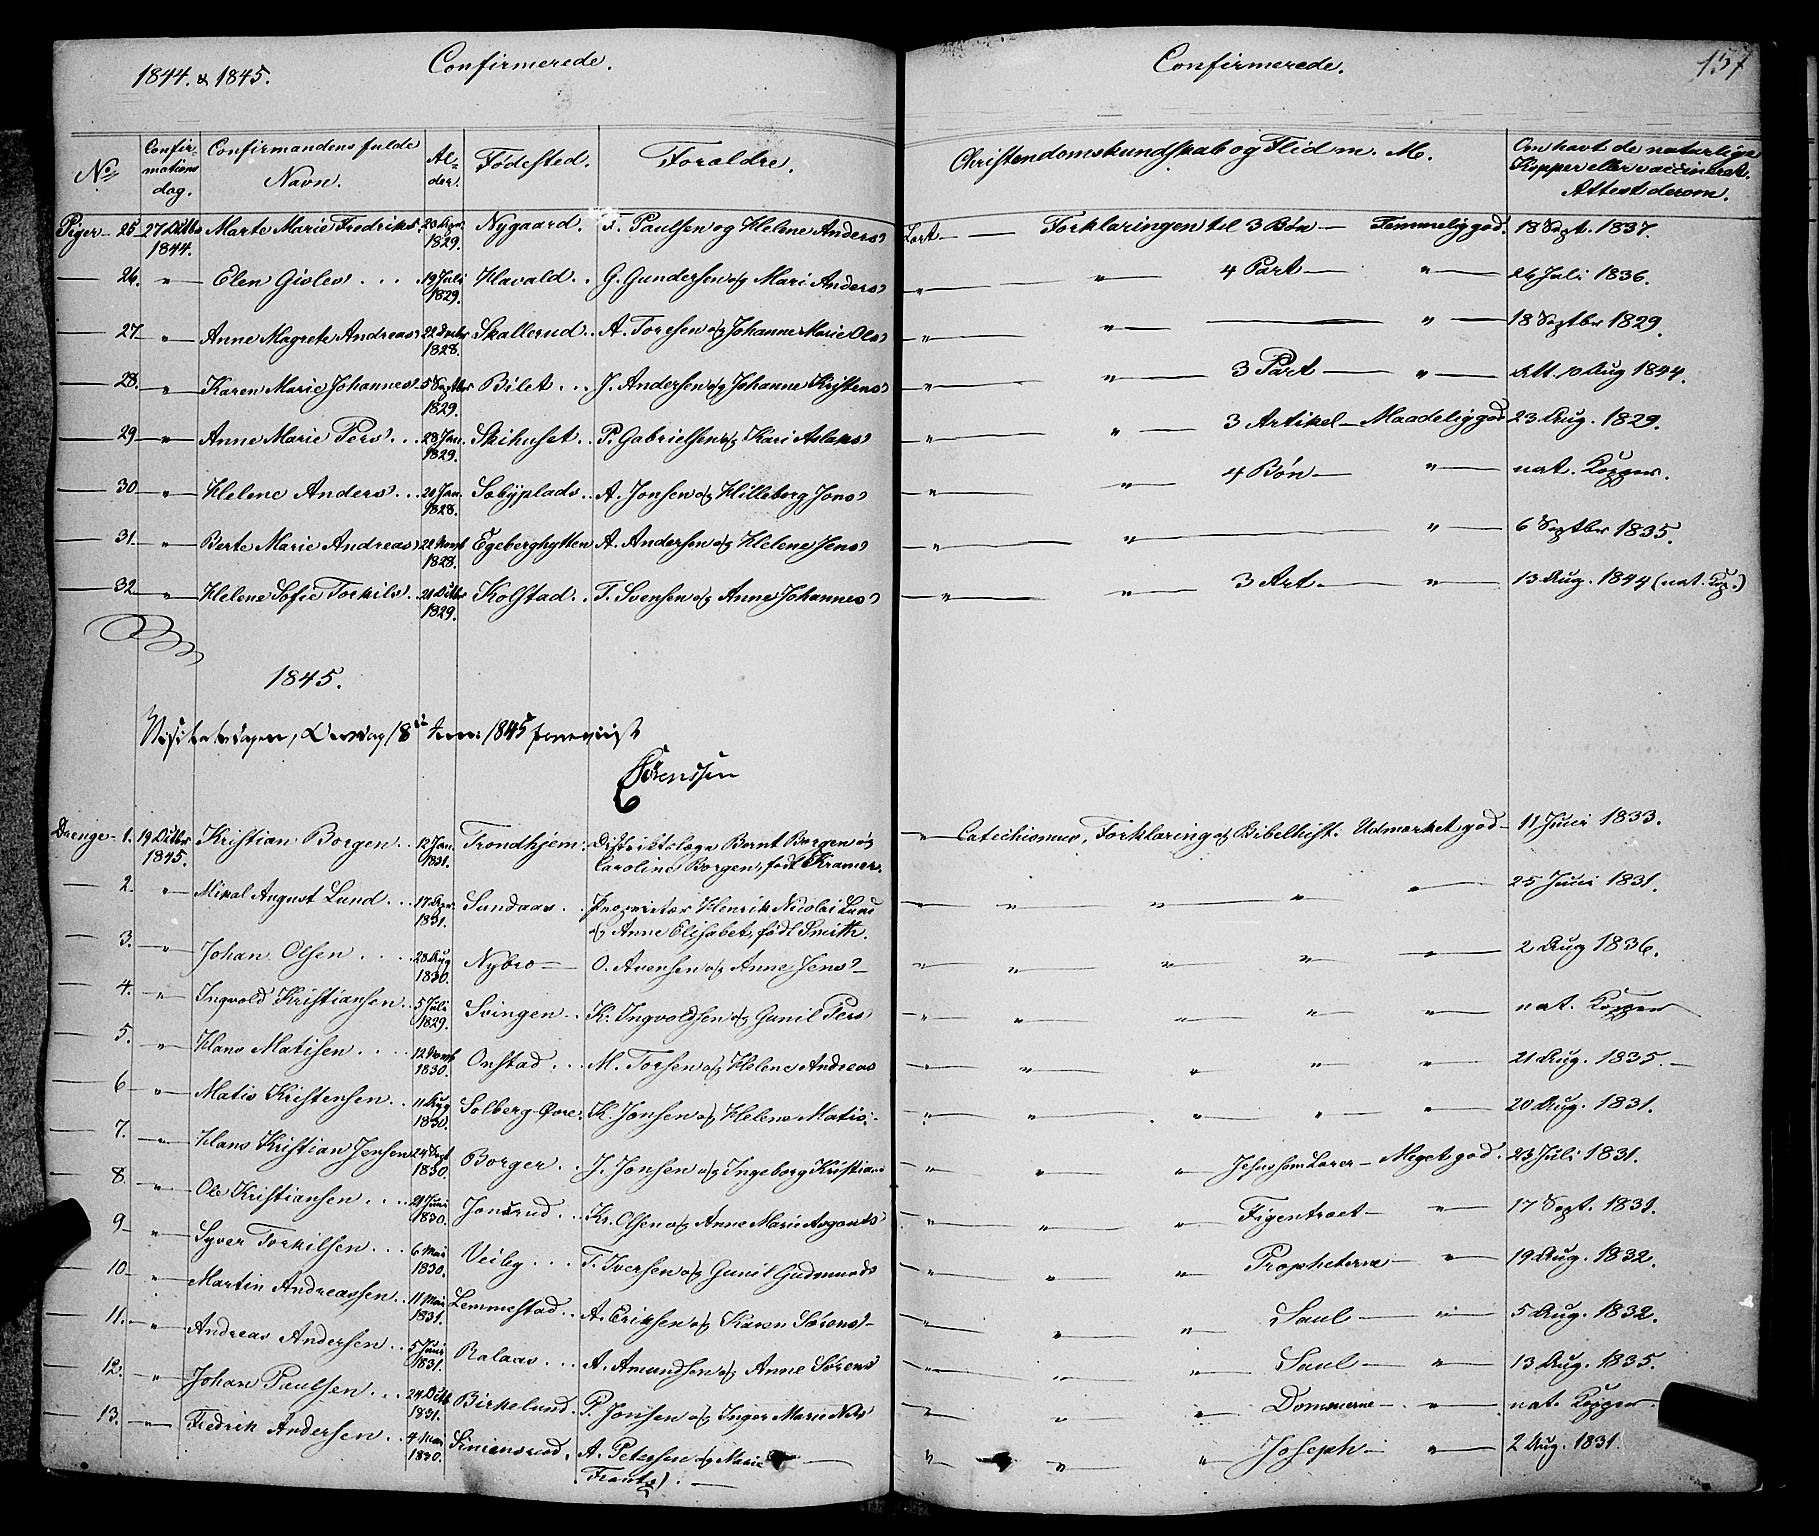 1844. & 1845. Confirmerede. Confirmerede. 157
No. Confirmations dag. Confirmandens fulde Navn. Alder. Fødested. Forældre. Christendomskundskab og Flid m. M. Om havt de naturlige Kopper eller vaccineret. Attest derom.
Piger 25 27 Octbr 1844. Marte Marie Fredriks 1829. Nygaard. F. Paulsen og Helene Anders Forklaringen til 3 Bøn — Temmelig god. 18 Sept. 1837.
26. " Elen Gislev 19 Juli 1829. Havald G. Gundersen og Mari Anders " " 4 Part — " 26 Juli 1836.
27 " Anne Magrete Andreas 1828. Skallerud A. Toresen og Johanne Marie Ols " " — " 18 Septbr 1829.
28. " Karen Marie Johannes 5 Septbr 1829. Bilet J. Andersen og Johanne Kristens " " 3 Part — " Att. 10 Aug 1844.
29 " Anne Marie Pers 28 Jan. 1829. Skihuset P. Gabrielsen og Kari Aslaks " " 3 Artikel — Maadelig god 23 Aug. 1829.
30 " Helene Anders 20 Jan. 1828. Søbyplads A. Jonsen og Hilleborg Jons " " 4 Bøn — " nat. Kopper.
31. " Berte Marie Andreas 1828. Egeberghytten A. Andersen og Helene Jens " " — " 6 Septbr 1835.
32. " Helene Sofie Torkils 1829. Kolstad T. Svensen og Anne Johannes " " 3 Art. — " 13 Aug. 1844 (nat. Kop.)
1845.
1845
Drenge 1. 19 Octbr 1845. Kristian Borgen 12 Jan. 1831. Trondhjem Distriktslæge Bernt Borgen og Caroline Borgen, født Kramer. " Catechismus, Forklaring og Bibelhist. Udmærket god — 11 Juni 1833.
2. " Mikal August Lund 1831. Sundaas Proprietær Henrik Nicolai Lund og Anne Elisabet, født Smith. " " " " " 25 Juni 1831.
3. " Johan Olsen 28 Aug 1830. Nybro O. Avensen og Anne Jens " " " " " 2 Aug 1836.
4. " Ingvold Kristiansen 5 Juli 1829. Svingen K. Ingvoldsen og Gunil Pers " " " " " nat. Kopper
5. " Hans Matisen 1830. Onstad M. Torsen og Helene Andreas " " " " " 21 Aug. 1835.
6 " Matis Kristensen 11 Aug 1830. Solberg Øvre K. Jonsen og Helene Matis " " " " " 20 Aug. 1831.
7. " Hans Kristian Jensen 24 Sept 1830. Borger J. Jonsen og Ingeborg Kristians " " " Jesus som Lærer — Meget god. 23 Juli 1831.
8. " Ole Kristiansen 21 Juni 1830. Jonsrud Kr. Olsen og Anne Marie " " " Figentræet — " 17 Sept. 1831.
9 " Syver Torkilsen 6 Mai 1830. Veiby T. Iversen og Gunil Gudmunds " " " Propheterne — " 19 Aug. 1832.
10. " Martin Andreassen 11 Mai 1831. Lemmestad A. Eriksen og Karen Sørens " " " Saul — " 5 Aug. 1832.
11. " Andreas Andersen 5 Juni 1831. Ralaas A. Amundsen og Anne Sørens " " " Saul — " 13 Aug. 1835.
12. " Johan Paulsen 1831. Birkelund P. Jonsen og Inger Marie Nels " " " Dommerne — " nat. Kopper.
13. " Fredrik Andersen 4 Mai 1830. A. Petersen og Marie Frants " " " Joseph — " 2 Aug. 1831.